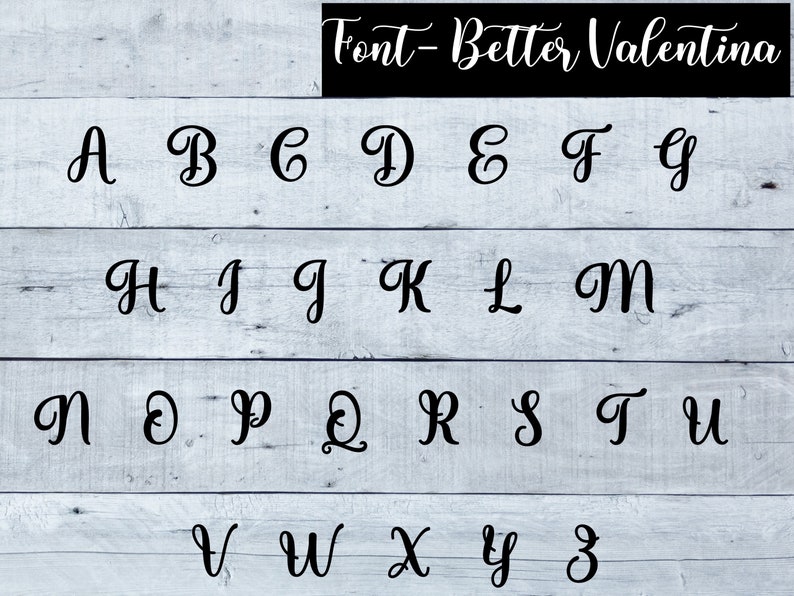 Font- Better Valentina
A B C D E F G
H I J K L M
N O P Q R S T U
V W X Y Z